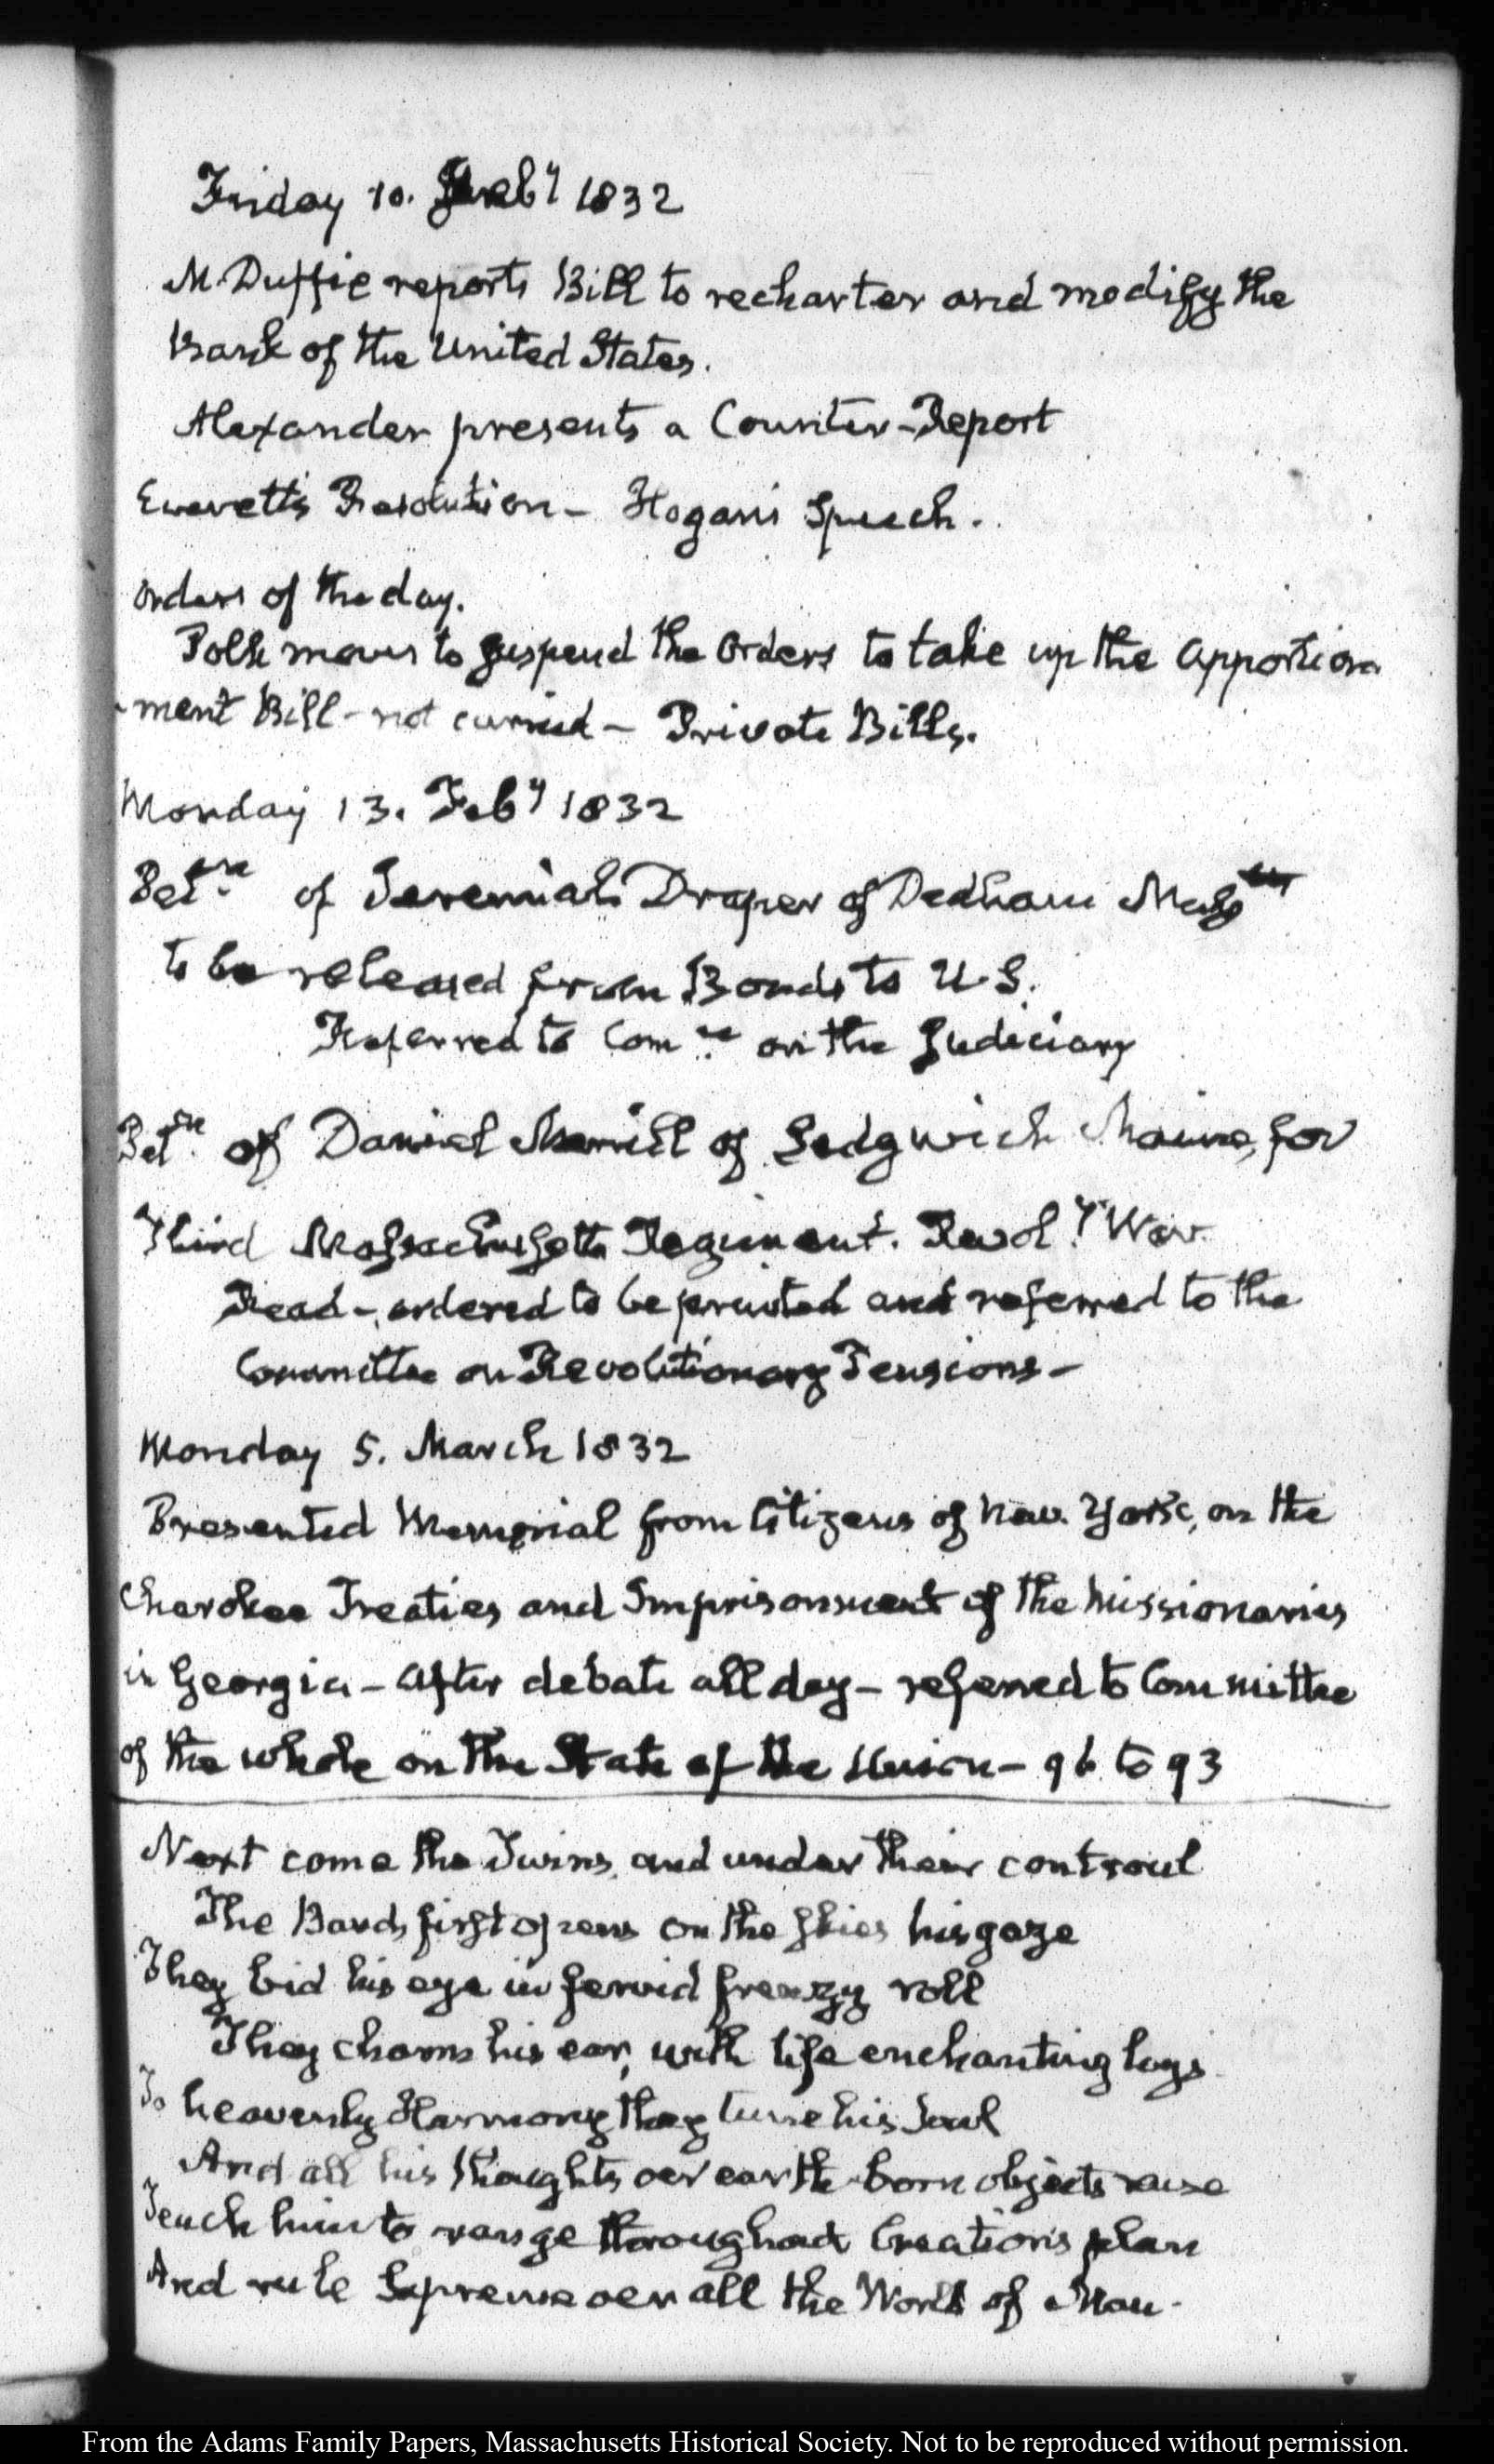 Friday 10. Feby 1832
McDuffie reports Bill to recharter and modify the
Bank of the United States.
Alexander presents a Counter-Report
Everett's Resolution – Hogan's Speech.
orders of the day.
Polk moves to suspend the Orders to take up the Apportion
-ment Bill – not carried – Private Bills.
Monday 13. Feby 1832
Petn. of Jeremiah Draper of Dedham Mass
to be released from Bonds to U.S.
Referred to Comee. on the Judiciary
Petn. of Daniel Merrill of Sedgwick Maine, for
Third Massachusetts Regiment. Revoly. War.
Read – ordered to be printed and referred to the
Committee on Revolutionary Pensions –
Monday 5. March 1832
Presented Memorial from Citizens of New York, on the
Cherokee Treaties and Imprisonment of the Missionaries
in Georgia – After debate all day – referred to Committee
of the whole on the State of the Union – 96 to 93
Next come the Twins, and under their controul
The Bard first opens on the skies his gaze
They bid his eye in fervid frenzy roll
They charm his ear, with life enchanting lays
To heavenly Harmony they tune his Soul
And all his thoughts oer earth-born objects raise
Teach him to range throughout Creation's plan
And rule Supreme oer all the World of Man.
From the Adams Family Papers, Massachusetts Historical Society. Not to be reproduced without permission.